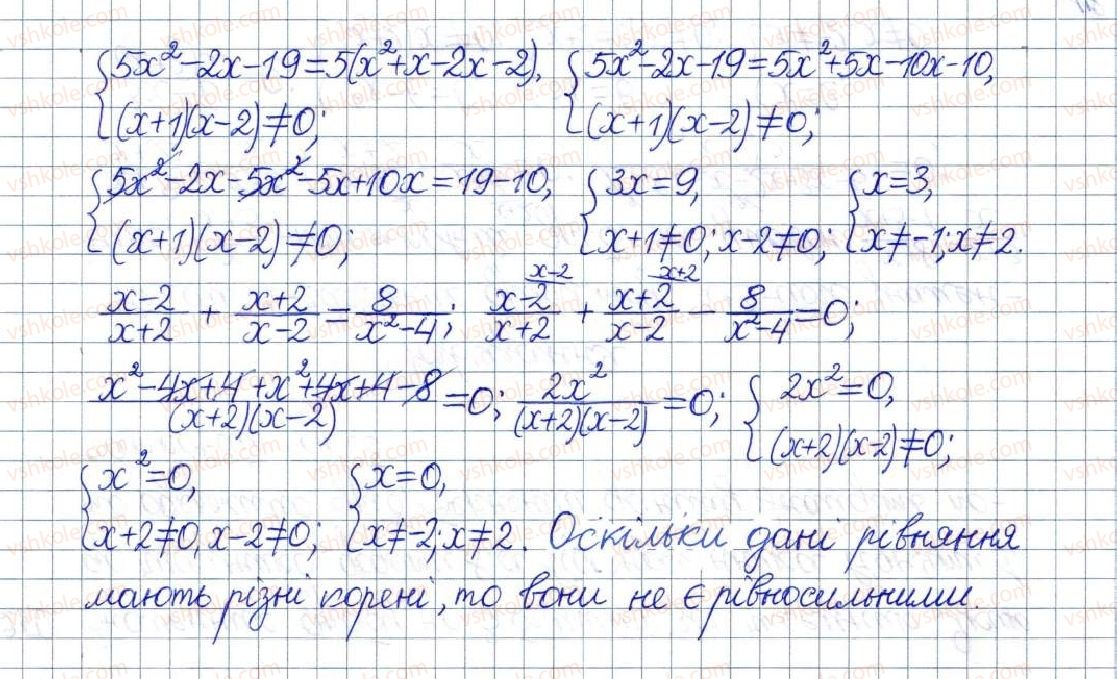 { 5x² − 2x − 19 = 5(x² + x − 2x − 2), { 5x² − 2x − 19 = 5x² + 5x − 10x − 10,
(x+1)(x−2) ≠ 0; (x+1)(x−2) ≠ 0;
{ 5x² − 2x − 5x² − 5x + 10x = 19 − 10, { 3x = 9, { x = 3,
(x+1)(x−2) ≠ 0; x+1 ≠ 0; x−2 ≠ 0; x ≠ −1; x ≠ 2.
(x−2)/(x+2) + (x+2)/(x−2) = 8/(x²−4); (x−2)/(x+2) ^(x−2) + (x+2)/(x−2) ^(x+2) − 8/(x²−4) = 0;
(x² − 4x + 4 + x² + 4x + 4 − 8)/((x+2)(x−2)) = 0; 2x²/((x+2)(x−2)) = 0; { 2x² = 0,
(x+2)(x−2) ≠ 0;
{ x² = 0, { x = 0,
x+2 ≠ 0, x−2 ≠ 0; x ≠ −2; x ≠ 2. Оскільки дані рівняння
мають різні корені, то вони не є рівносильними.
vshkole.com